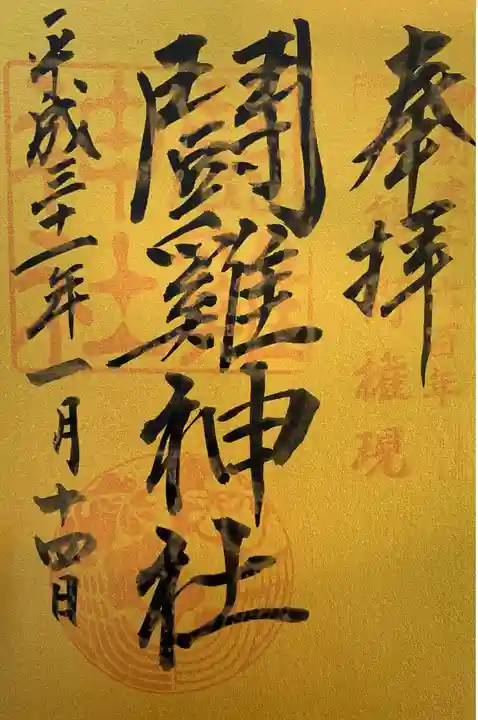 奉拝
権現
闘雞神社
平成三十一年一月十四日